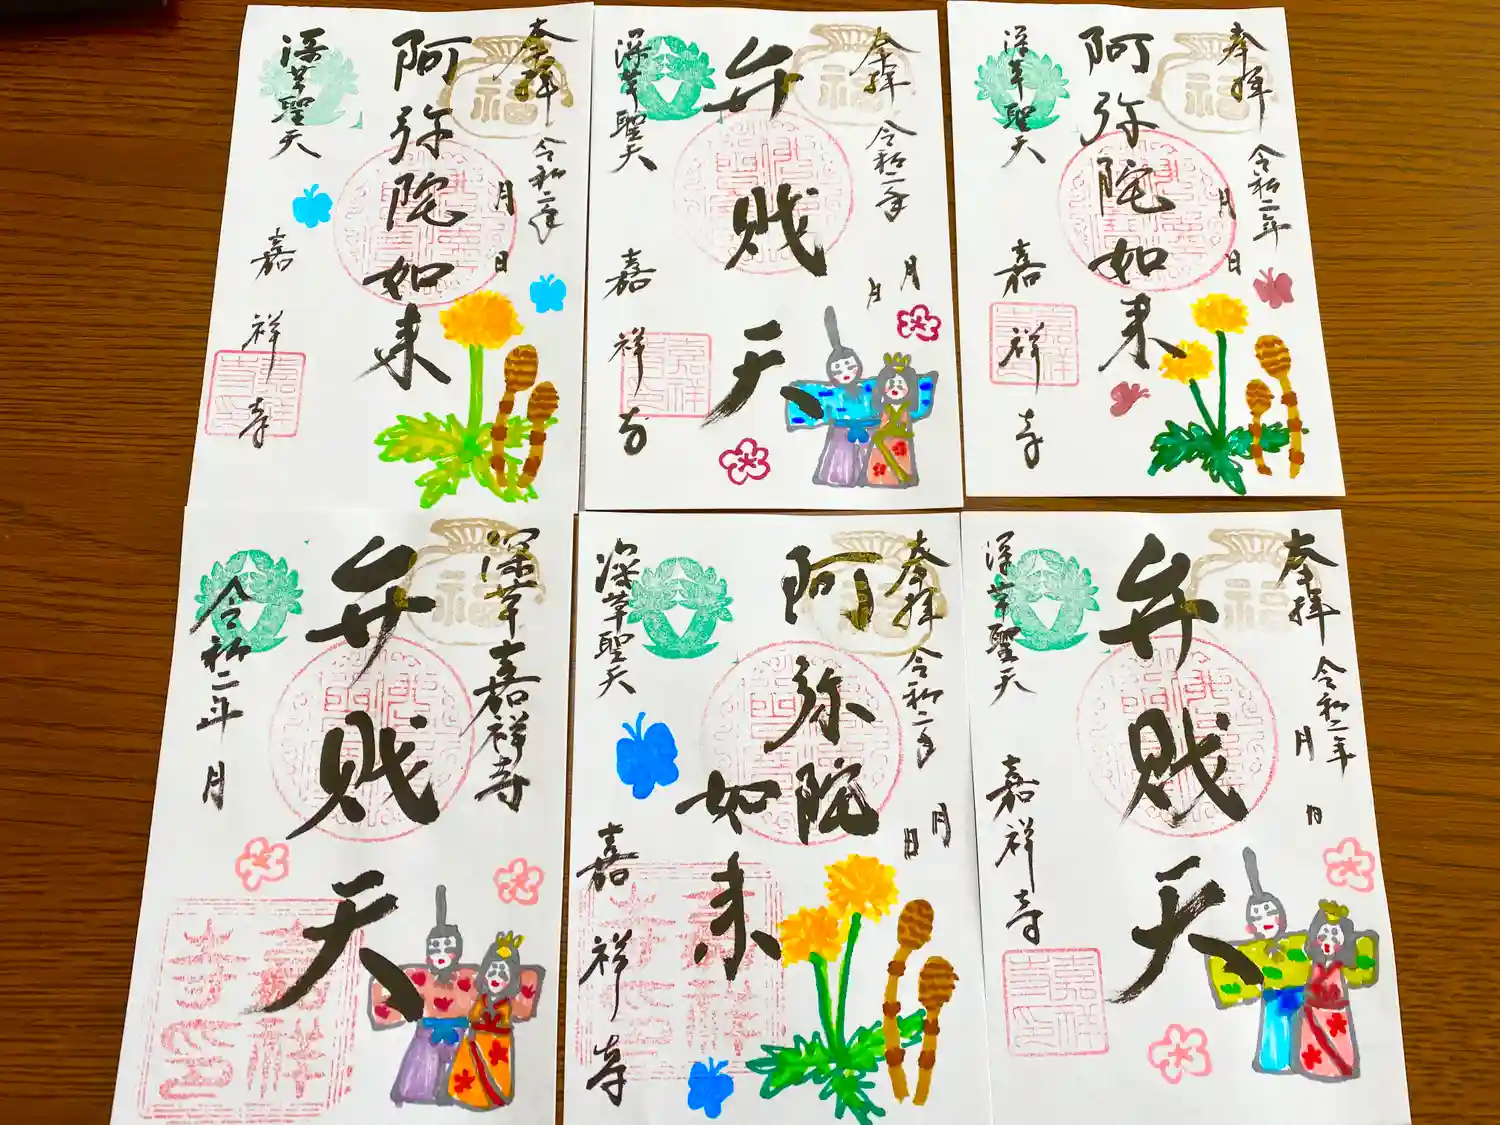 奉拝
令和二年
月
日
福
阿弥陀如来
深草聖天
嘉祥寺
奉拝
令和二年
月
日
福
弁財天
深草聖天
嘉祥寺
奉拝
令和二年
月
日
福
阿弥陀如来
深草聖天
嘉祥寺
深草嘉祥寺
福
弁財天
令和二年
月
奉拝
令和二年
月
日
阿弥陀
如来
深草聖天
嘉祥寺
奉拝
令和二年
月
日
福
弁財天
深草聖天
嘉祥寺